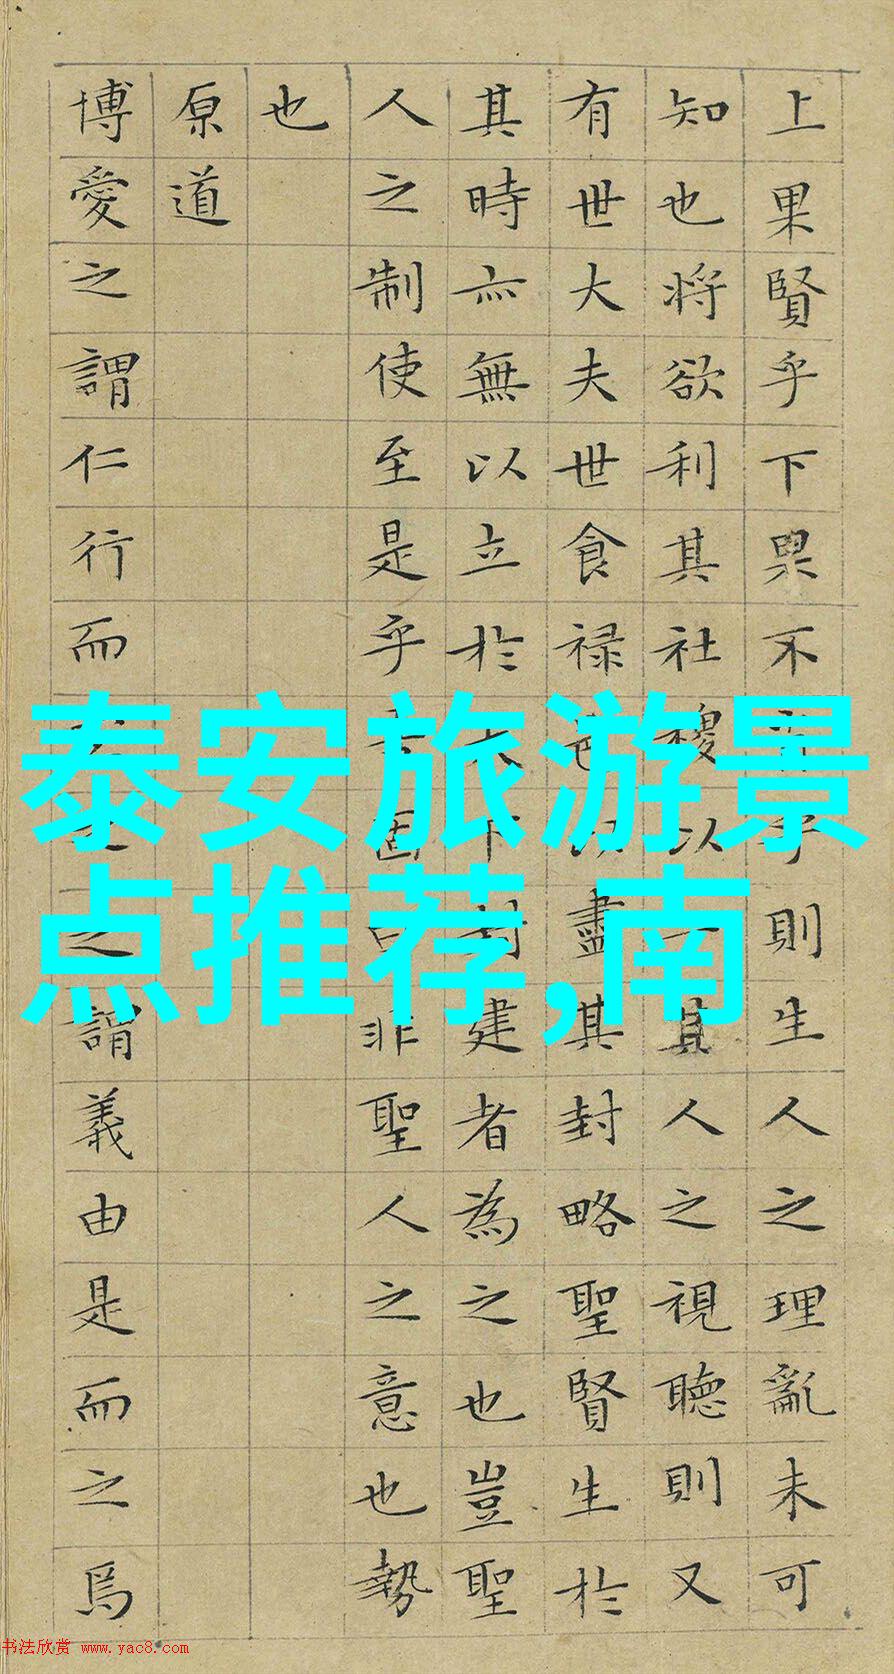 上果賢乎下果不乎則生人之理亂未可
知也将欲利其社稷以一其人之視聽則又
有世大夫世食禄邑以盡其封略聖賢生於
其時亦無以立於天下封建者為之也豈聖
人之制使至是乎吾固曰非聖人之意也勢
也
原道
博愛之謂仁行而之之謂義由是而之焉
泰安旅游景
点推荐,南
书法欣赏 www.yac8.com